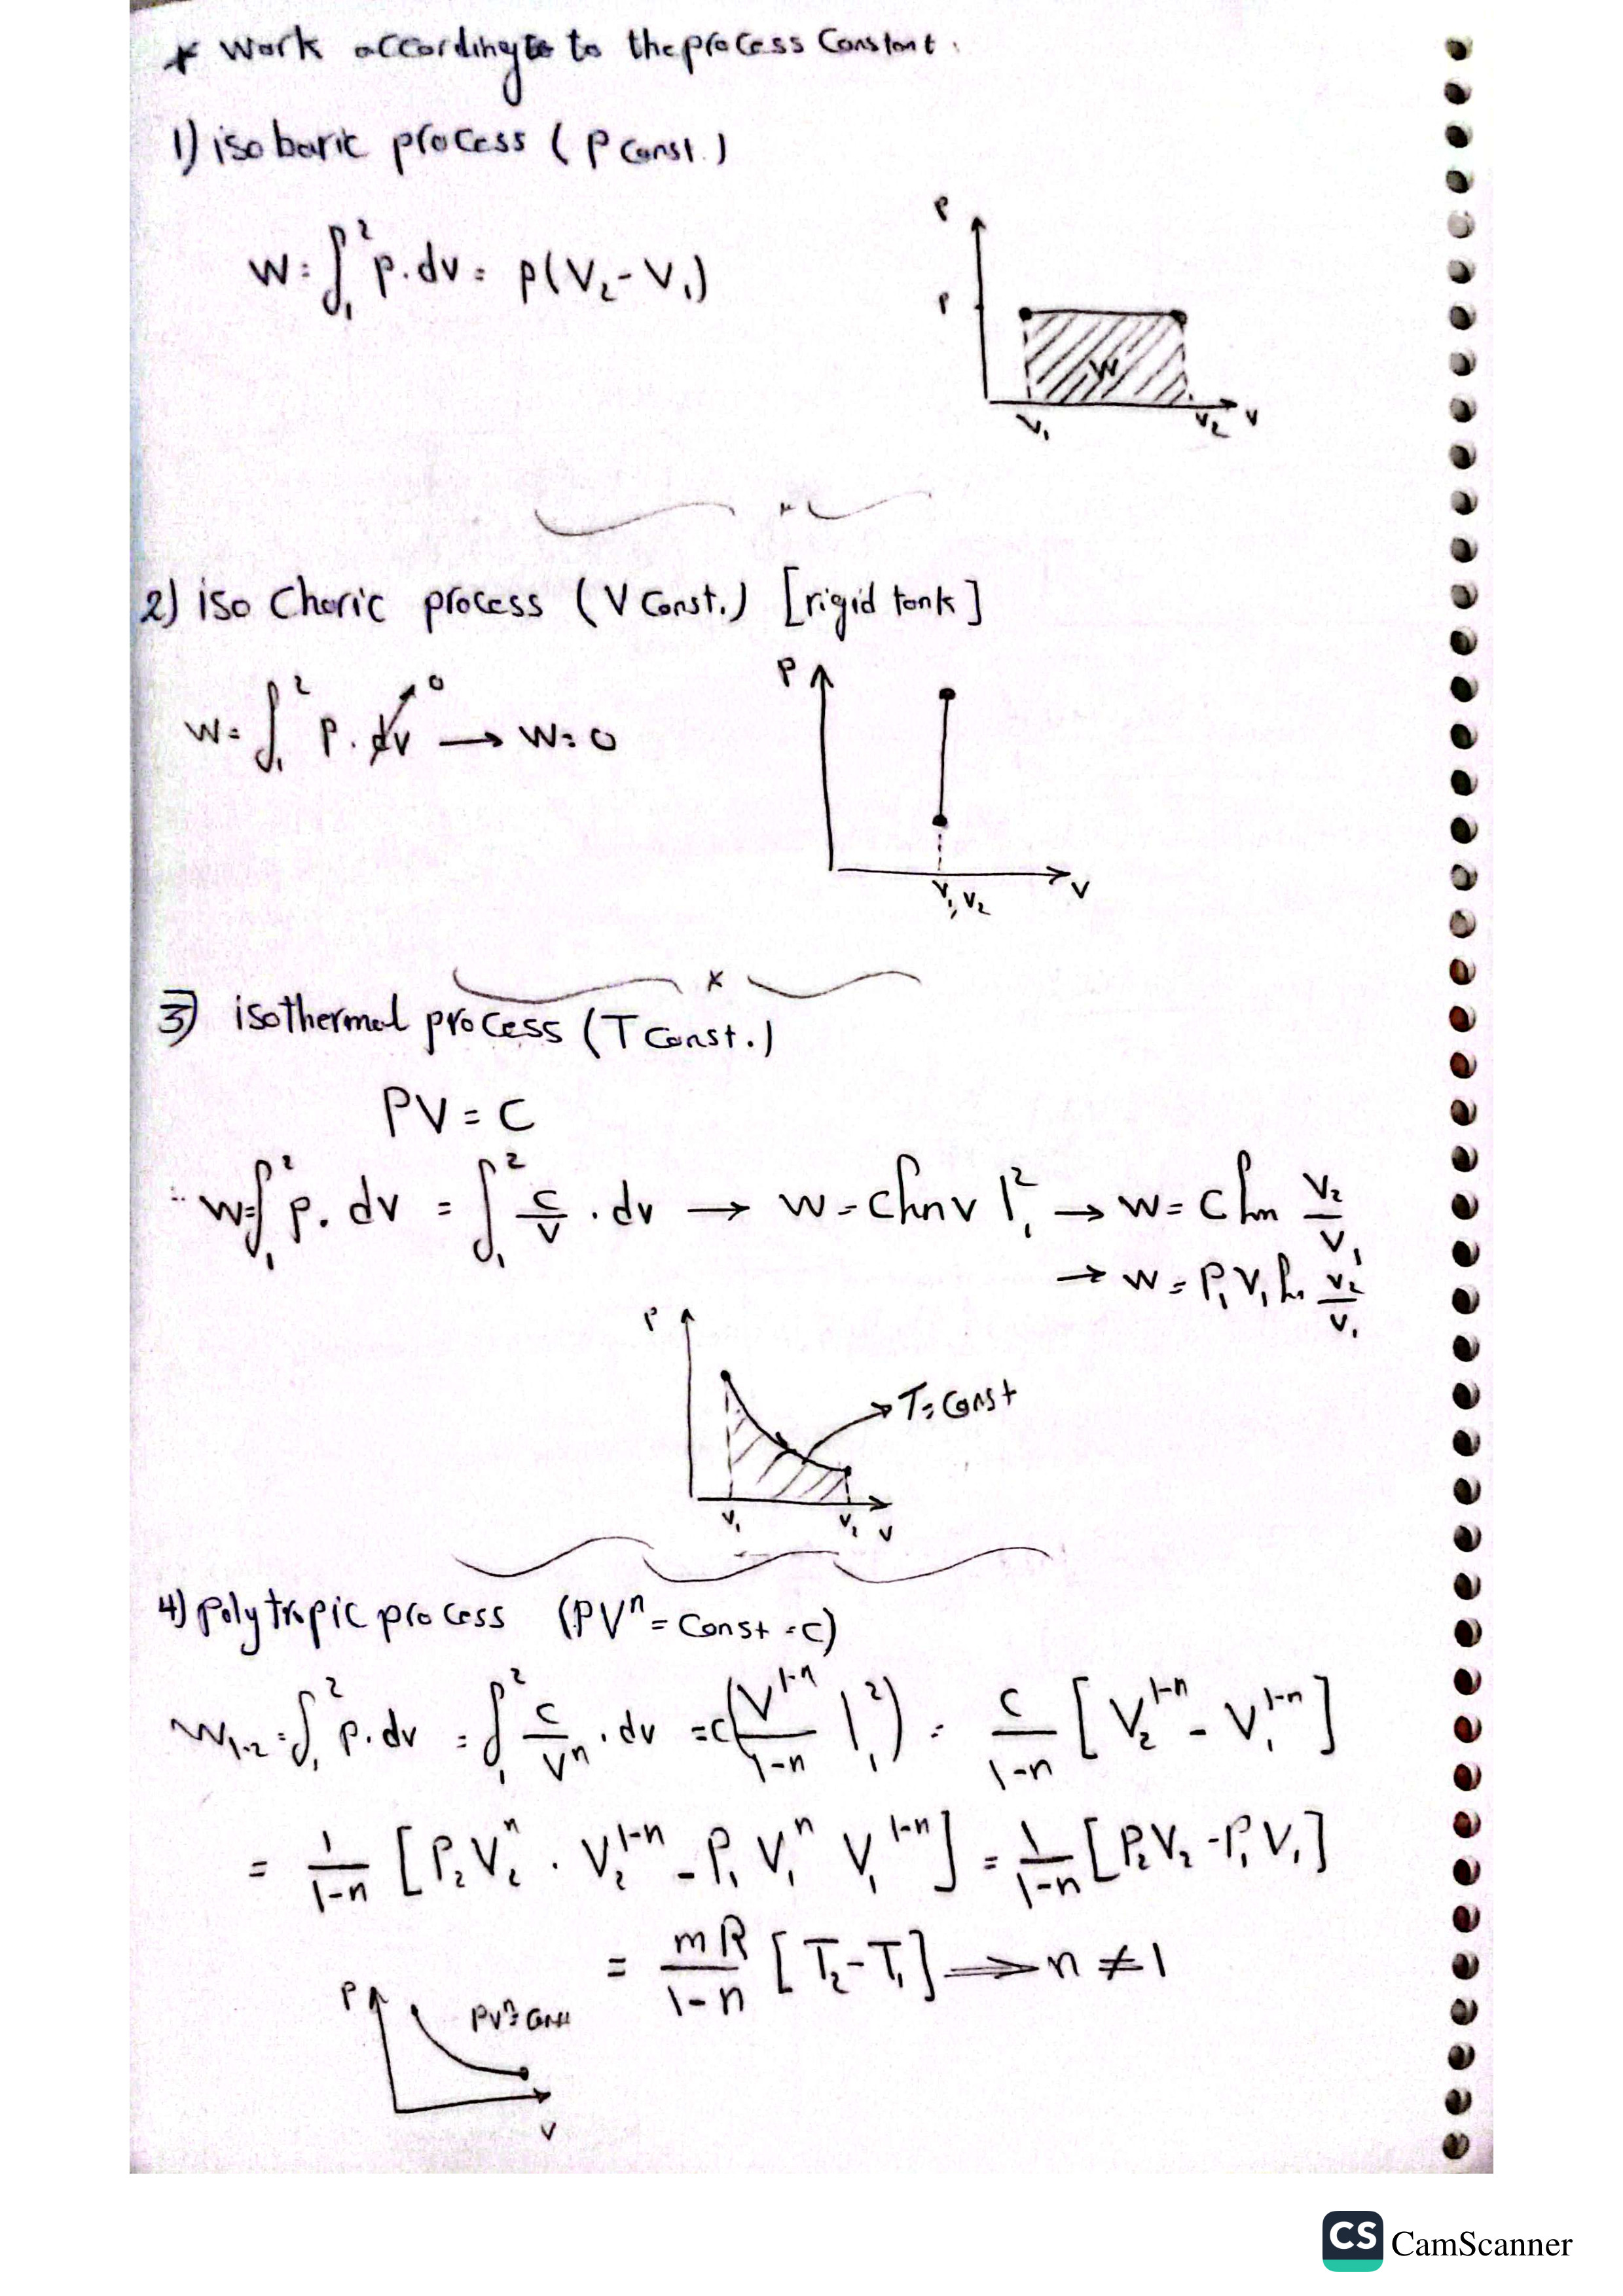 * Work accordingto to the process Constant.
1) isobaric process ( P const. )
W = ∫₁² p. dv = p(V₂ - V₁)
P
P
W
V₁ V₂ V
2) iso Choric process ( V Const. ) [ rigid tank ]
W = ∫₁² P. dv → 0 → W = 0
P
V₁, V₂ V
3) isothermal process ( T Const. )
PV = C
∴ W = ∫₁² p. dv = ∫₁² C/V . dv → W = C ln V |₁² → W = C ln V₂/V₁
→ W = P₁ V₁ ln V₂/V₁
P
T = Const
V₁ V₂ V
4) polytropic process ( PVⁿ = Const = C )
W₁₋₂ = ∫₁² p. dv = ∫₁² C/Vⁿ . dv = C ( V¹⁻ⁿ/1-n |₁² ) = C/1-n [ V₂¹⁻ⁿ - V₁¹⁻ⁿ ]
= 1/1-n [ P₂ V₂ⁿ . V₂¹⁻ⁿ - P₁ V₁ⁿ V₁¹⁻ⁿ ] = 1/1-n [ P₂V₂ - P₁V₁ ]
= mR/1-n [ T₂ - T₁ ] ⟹ n ≠ 1
P
PVⁿ = Const
V
CS CamScanner